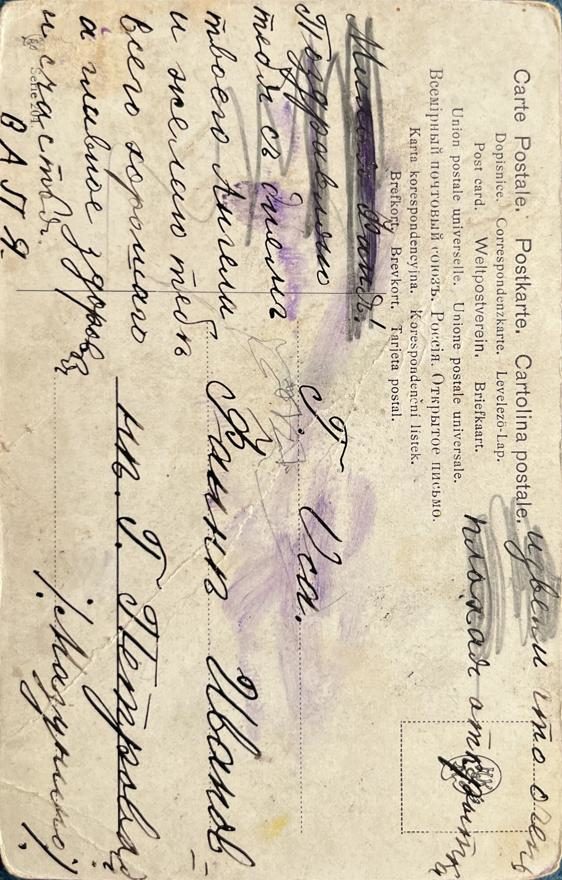 Carte Postale. Postkarte. Cartolina postale.
Dopisnice. Correspondenzkarte. Levelező-Lap.
Post card. Weltpostverein. Briefkaart.
Union postale universelle. Unione postale universale.
Всемірный почтовый союзъ. Россія. Открытое письмо.
Karta korespondencyjna. Korespondenční listek.
Brefkort. Brevkort. Tarjeta postal.
что очень
плохая
Поздравляю
тебя съ днемъ
твоего Ангела
и желаю тебѣ
всего хорошаго
а главное здоровья
и счастья.
ВАЛЯ.
Serie 201.
Г. Уса.
Фаинѣ Иванов-
нѣ. Г. Петровой